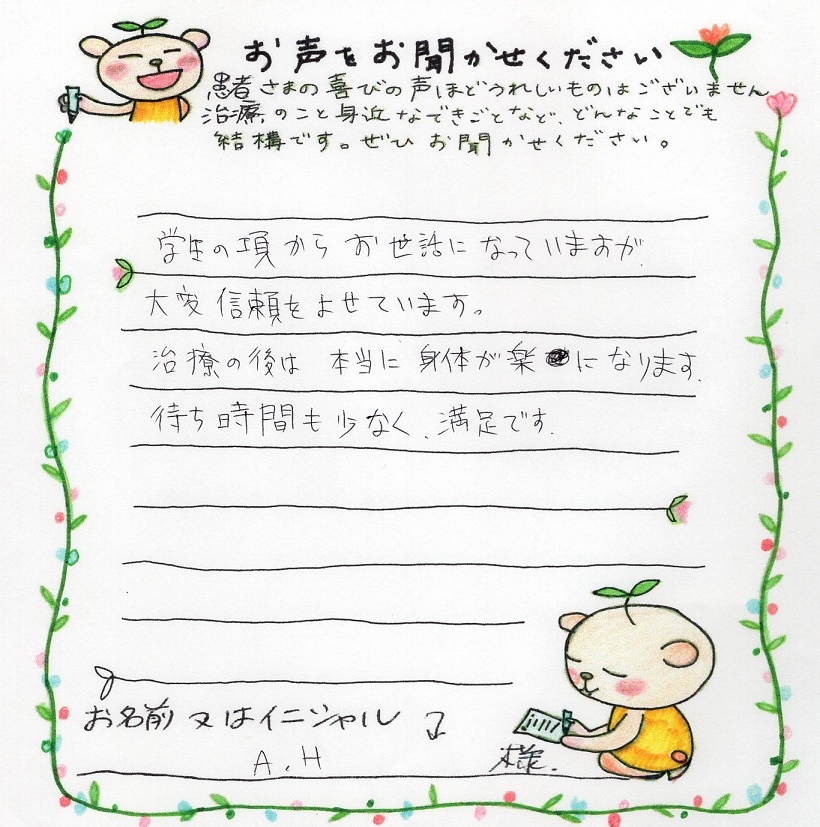 お声をお聞かせください
患者さまの喜びの声ほどうれしいものはございません
治療のこと身近なできごとなど、どんなことでも
結構です。ぜひお聞かせください。
学生の項からお世話になっていますが
大変信頼をよせています。
治療の後は 本当に 身体が楽になります。
待ち時間も少なく、満足です。
お名前 又はイニシャル
A.H 様.